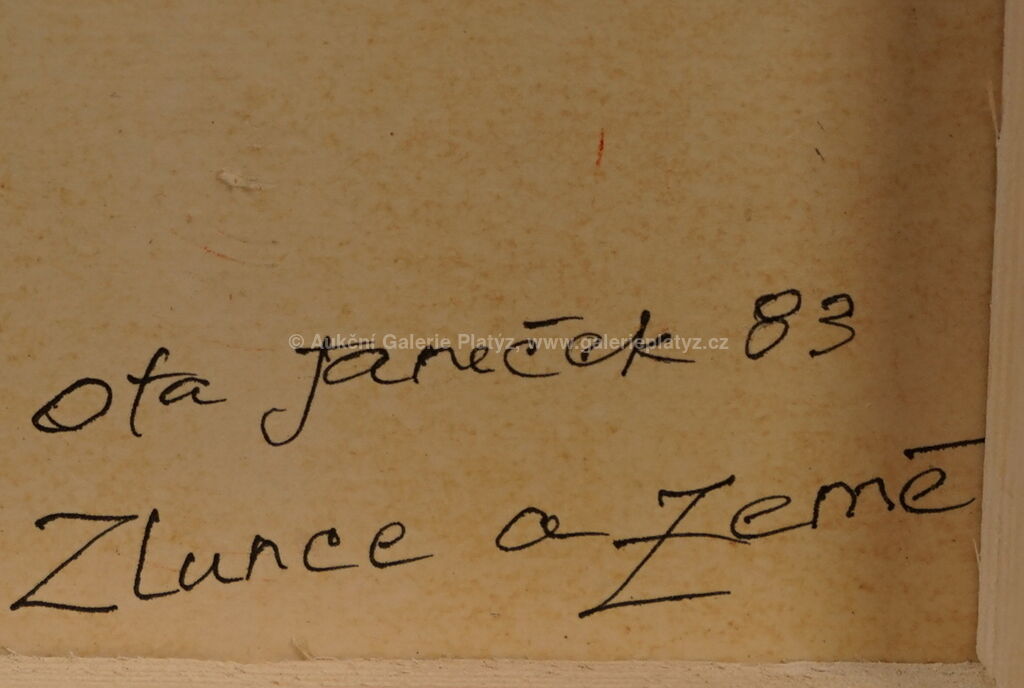 © Aukční Galerie Platýz, www.galerieplatyz.cz
Ota Janeček 83
Zlunce a Země